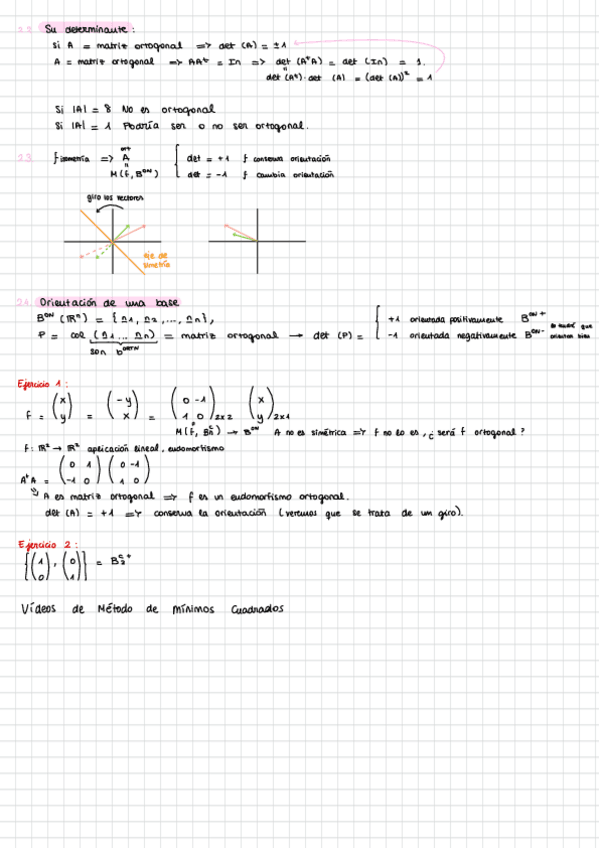 2.2. Su determinante:
Si A = matriz ortogonal => det (A) = ±1
A = matriz ortogonal => AAᵗ = In => det (AᵗA) = det (In) = 1.
det (Aᵗ) · det (A) = (det (A))² = 1
Si |A| = 8 No es ortogonal
Si |A| = 1 Podría ser o no ser ortogonal.
2.3. f isometría => A { det = +1 } conserva orientación
M(f, Bᴼᴺ) { det = -1 } cambia orientación
giro los vectores
eje de simetría
2.4. Orientación de una base
Bᴼᴺ (ℝⁿ) = {u1, u2, ..., un},
+1 orientada positivamente Bᴼᴺ⁺
P = col (u1 ... un) = matriz ortogonal → det (P) = -1 orientada negativamente Bᴼᴺ⁻
son
Ejercicio 1:
f = (x y) = (-y x) = (0 -1 1 0)2x2 (x y)2x1
M(f, Bc) → Bᴼᴺ A no es simétrica => f no lo es, ¿será f ortogonal?
f: ℝ² → ℝ² aplicación lineal, endomorfismo
AᵗA = (0 1 -1 0) (0 -1 1 0)
A es matriz ortogonal => f es un eudomorfismo ortogonal.
det (A) = +1 => conserva la orientación (veremos que se trata de un giro).
Ejercicio 2:
{(1 0), (0 1)} = B₂ᶜ⁺
Vídeos de Método de mínimos cuadrados